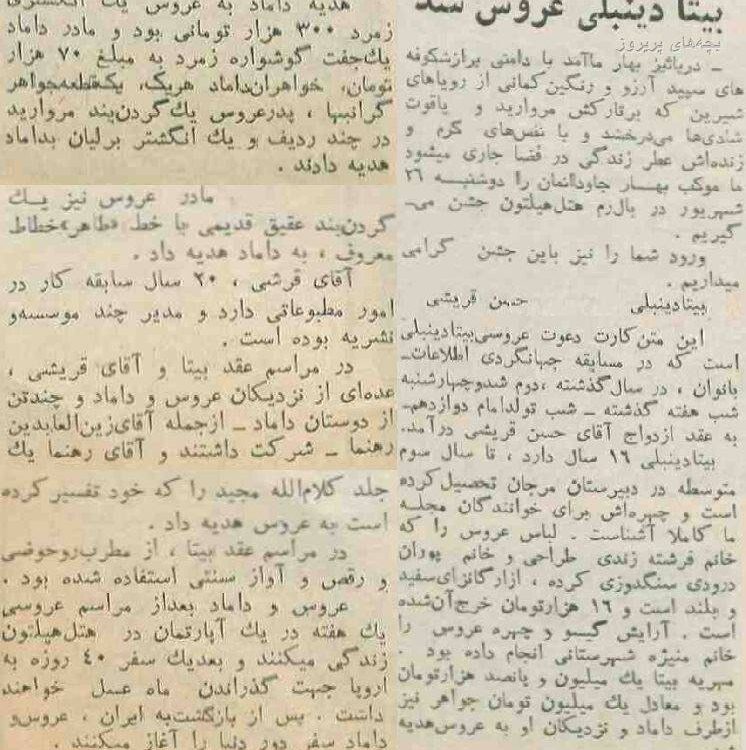 بیتا دینبلی عروس شد
بچه‌های پریروز
ـ درپائیز بهار ماآمد با دامنی پرازشکوفه
های سپید آرزو و رنگین‌کمانی از رویاهای
شیرین که برقارکش مروارید و یاقوت
شادی‌ها می‌درخشد و با نفس‌های گرم و
زنده‌اش عطر زندگی در فضا جاری میشود
ما موکب بهار جاودانمان را دوشنبه ۲۶
شهریور در بال‌رم هتل‌هیلتون جشن می‌ـ
گیریم .
ورود شما را نیز باین جشن گرامی
میداریم .
بیتادینبلی حسن قریشی
این متن‌کارت دعوت عروسی‌بیتادینبلی
است که در مسابقه جهانگردی اطلاعات‌ـ
بانوان ، در سال‌گذشته ،دوم شدوچهارشنبه
شب هفته گذشته ـ شب تولدامام دوازدهم‌ـ
به عقد ازدواج آقای حسن قریشی درآمد.
بیتادینبلی ۱۶ سال دارد ، تا سال سوم
متوسطه در دبیرستان مرجان تحصیل‌کرده
است و چهره‌اش برای خوانندگان مجله
ما کاملا آشناست . لباس عروس را که
خانم فرشته زندی طراحی و خانم پوران
درودی سنگدوزی کرده ، ازارگانزای‌سفید
و بلند است و ۱۶ هزارتومان خرج‌آن‌شده
است . آرایش گیسو و چهره عروس را
خانم منیژه شهرستانی انجام داده بود .
مهریه بیتا یك میلیون و پانصد هزارتومان
بود و معادل یك میلیون تومان جواهر نیز
ازطرف داماد و نزدیکان او به عروس‌هدیه
هدیه داماد به عروس یك انگشتری
زمرد ۳۰۰ هزار تومانی بود و مادر داماد
یك‌جفت گوشواره زمرد به مبلغ ۷۰ هزار
تومان، خواهران‌داماد هریك، یکقطعه‌جواهر
گرانبها ، پدرعروس یك گردن‌بند مروارید
در چند ردیف و یك انگشتر برلیان بداماد
هدیه دادند .
مادر عروس نیز یك
گردن‌بند عقیق قدیمی با خط «طاهر»خطاط
معروف ، به داماد هدیه داد .
آقای قرشی ، ۲۰ سال سابقه کار در
امور مطبوعاتی دارد و مدیر چند موسسه‌و
نشریه بوده است .
در مراسم عقد بیتا و آقای قریشی ،
عده‌ای از نزدیکان عروس و داماد و چندتن
از دوستان داماد ـ ازجمله آقای‌زین‌العابدین
رهنما ـ شرکت داشتند و آقای رهنما یك
جلد کلام‌الله مجید را که خود تفسیر کرده
است به عروس هدیه داد .
در مراسم عقد بیتا ، از مطرب‌روحوضی
و رقص و آواز سنتی استفاده شده بود .
عروس و داماد بعداز مراسم عروسی
یك هفته در یك آپارتمان در هتل‌هیلتون
زندگی میکنند و بعدیك سفر ۴۰ روزه به
اروپا جهت گذراندن ماه عسل خواهند
داشت . پس از بازگشت‌به ایران ، عروس‌و
داماد سفر دور دنیا را آغاز میکنند .